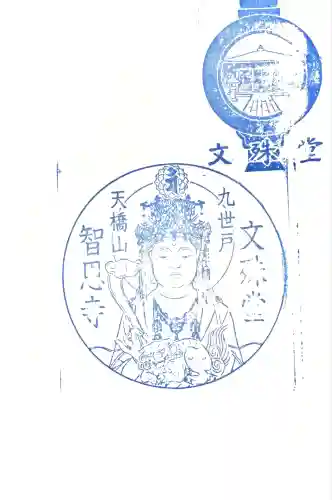 文殊堂
九世戸
文殊堂
天橋山
智恩寺